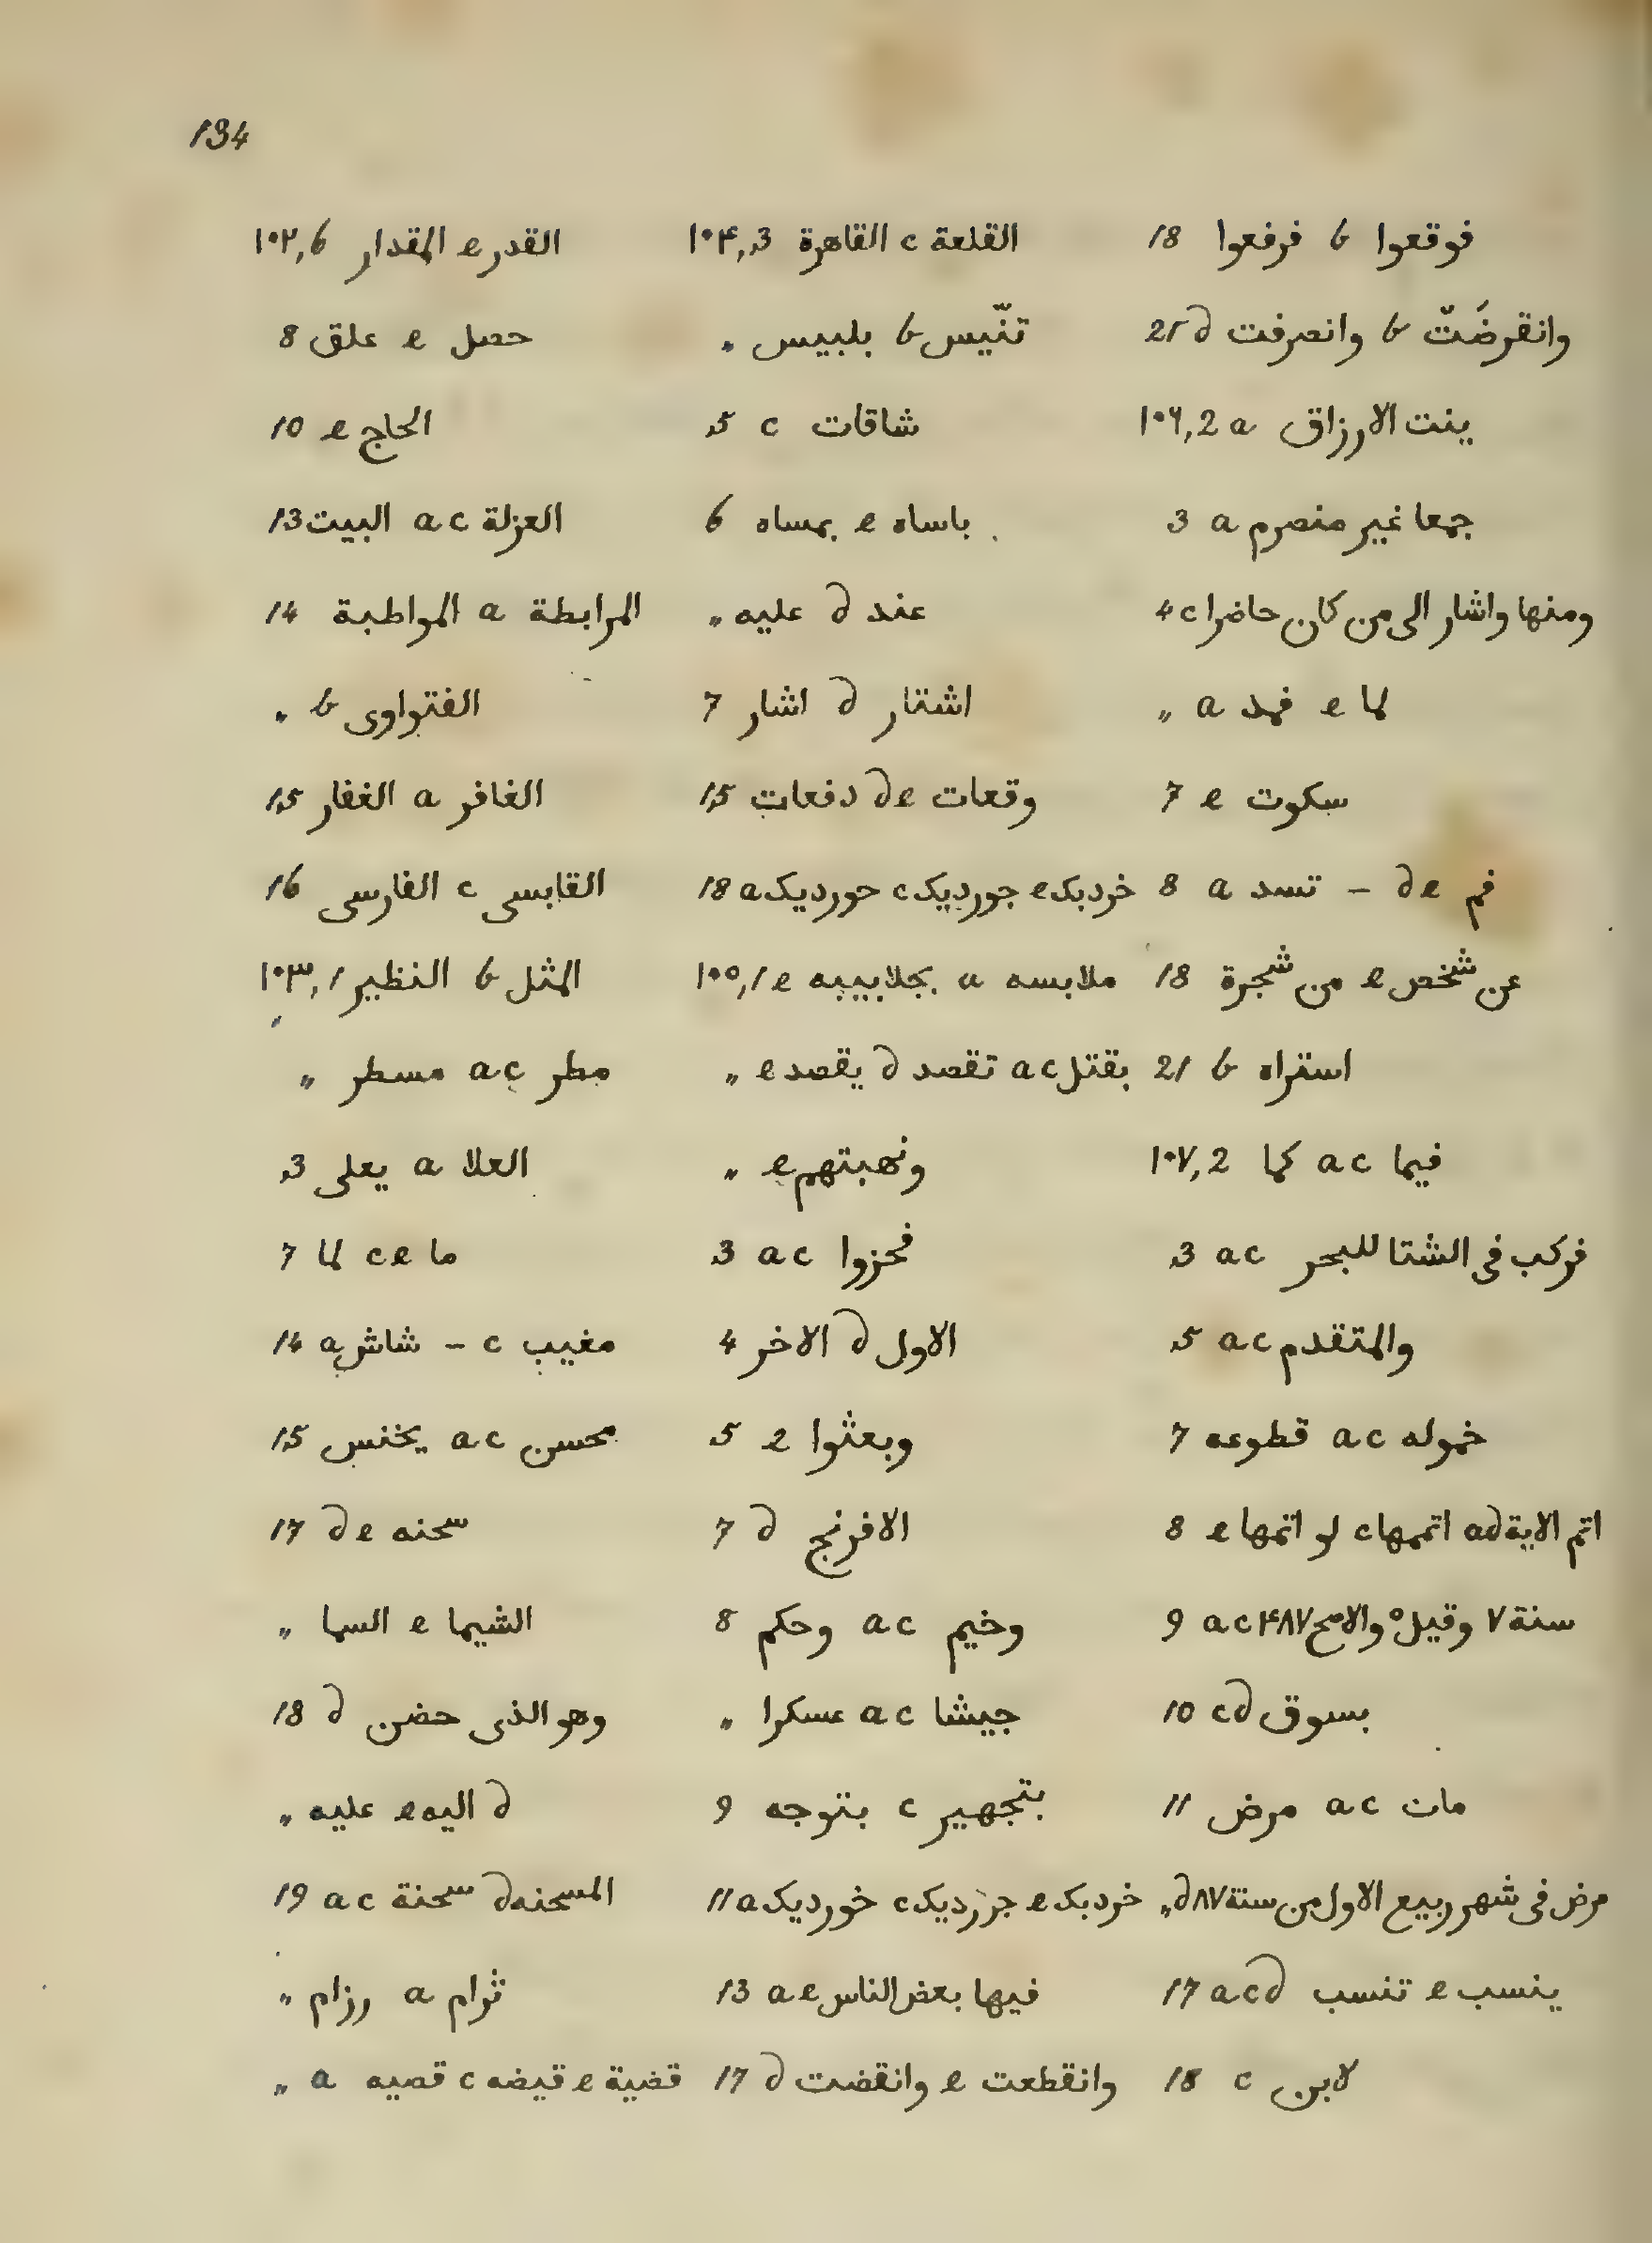 134
القدر e المقدار ۱۰۲,6
حصل e علق 8
الحاج e 10
العزلة ac البيت 13
المرابطة a المواظبة 14
الفتواوى b „
الغافر a الغفار 15
القابسى c الفارسى 16
المثل b النظير ۱۰۳,1
مطر ac مسطر „
العلا a يعلى 3
ما ce لما 7
مغيب c – شاش a 14
محسن ac يخنس 15
سحنه de 17
الشيما e السما „
وهو الذى حضن d 18
d اليه e عليه „
المسحنه d سحنة ac 19
ثرام a رزام „
قضية e قيضه c قصيه a „
القلعة c القاهرة ۱۰۴,3
تنّيس b بلبيس „
شاقات c 5
باساه e بمساه 6
عند d عليه „
اشتار d اشار 7
وقعات de دفعات 15
خردبك e جورديك c حورديك a 18
ملابسه a بجلابيبه e ۱۰۵,1
بقتل ac تقصد d يقصد e „
ونهبتهم e „
فحزوا ac 3
الاول d الاخر 4
وبعثوا e 5
الافرنج d 7
وخيم ac وحكم 8
جيشا ac عسكرا „
بتجهير c بتوجه 9
خردبك e جرزديك c خورديك a 11
فيها بعض الناس ae 13
وانقطعت e وانقضت d 17
فوقعوا b فرفعوا 18
وانقرضَتّ b وانصرفت d 21
ينت الارزاق a ۱۰۶,2
جمعا غير منصرم a 3
ومنها واشار الى من كان حاضرا c 4
لما e فمد a „
سكوت e 7
فم de – تسد a 8
عن شخص e من شجرة 18
استراه b 21
فيما ac كما ۱۰۷,2
فركب فى الشتا للبحر ac 3
والمتقدم ac 5
خموله ac قطوعه 7
اتم الاية ad اتممها c لو اتمها e 8
سنة ۷ وقيل ۵ والاصح ۴۸۷ ac 9
بسوق cd 10
مات ac مرض 11
مرض فى شهر ربيع الاول من سنة ۸۷ d „
ينسب e تنسب acd 17
لابن c 18